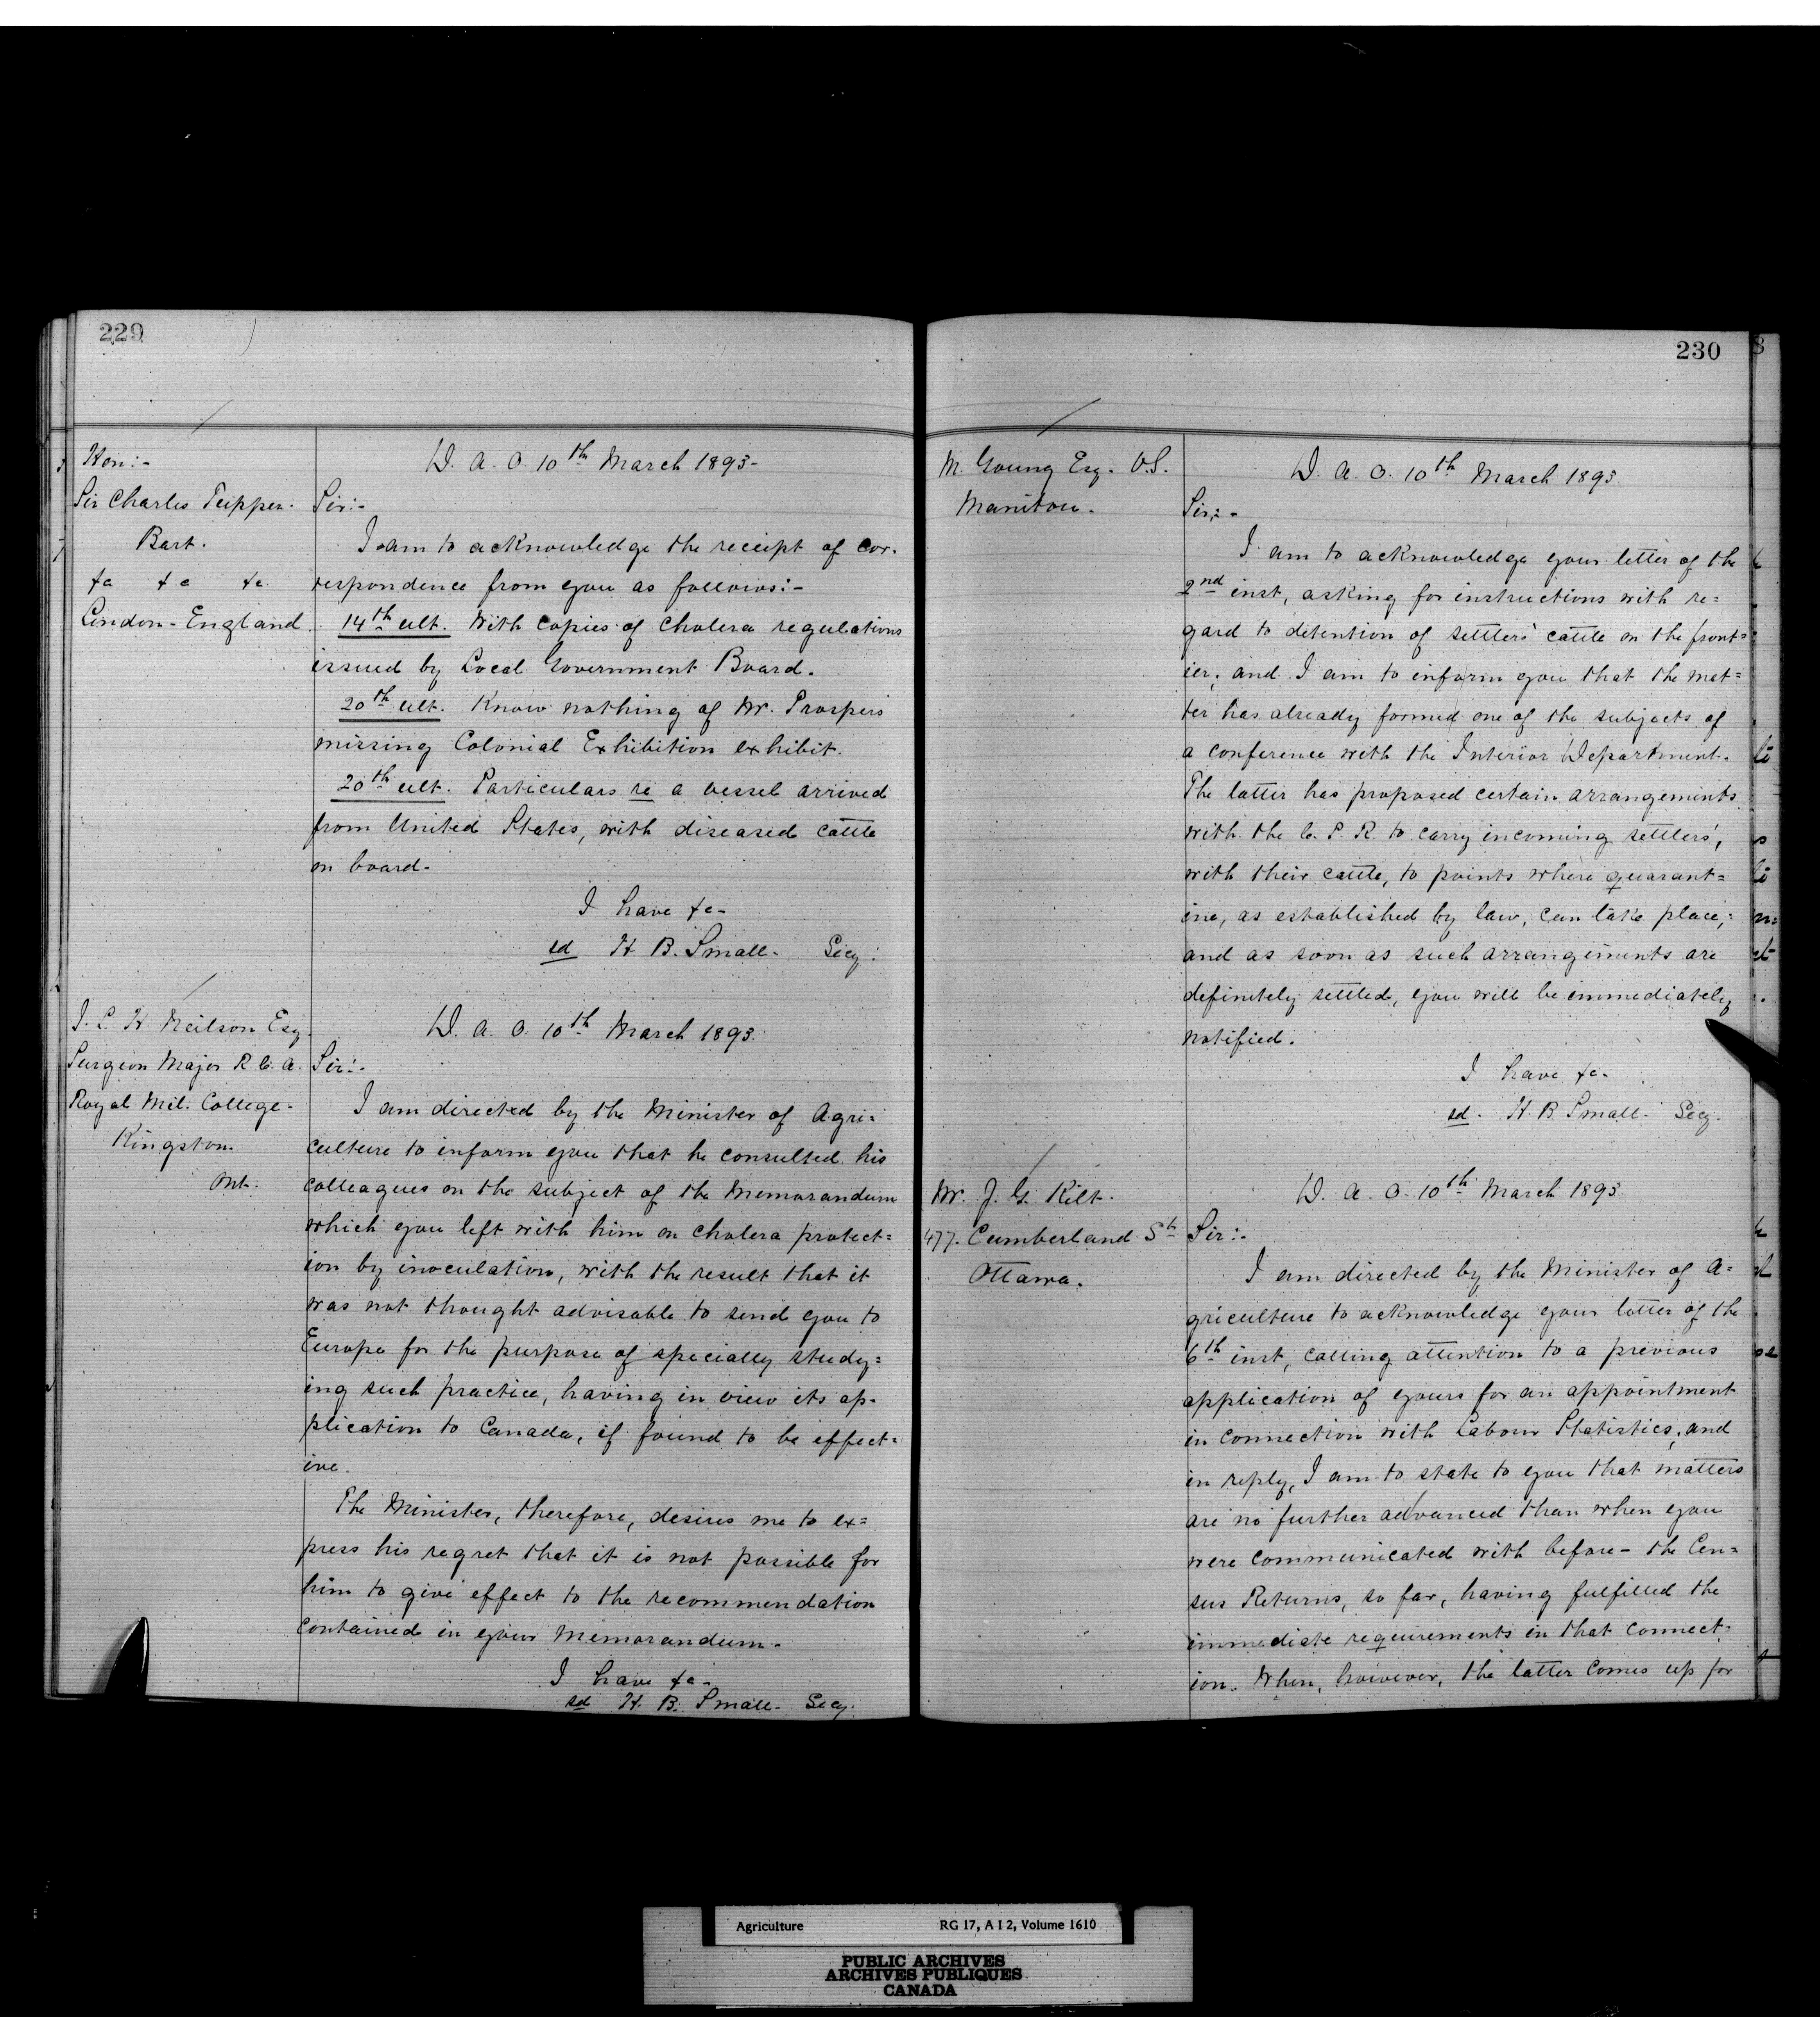 229
Hon:-
Sir Charles Tupper.
Bart.
&c &c &c
London - England.
D. A. O. 10th March 1893-
Sir:-
I am to acknowledge the receipt of cor-
respondence from you as follows:-
14th ult. With copies of Cholera regulations
issued by Local Government Board.
20th ult. Know nothing of Mr. Prospers
missing Colonial Exhibition exhibit.
20th ult. Particulars re a vessel arrived
from United States, with diseased cattle
on board-
I have &c-
sd H. B. Small. Secy.
J. L. H Neilson Esq
Surgeon Major R. C. A.
Royal Mil. College-
Kingston.
Ont.
D. A. O. 10th March 1893.
Sir:-
I am directed by the Minister of Agri-
culture to inform you that he consulted his
colleagues on the subject of the Memorandum
which you left with him on cholera protect=
ion by inoculation, with the result that it
was not thought advisable to send you to
Europe for the purpose of specially study=
ing such practice, having in view its ap-
plication to Canada, if found to be effect=
ive.
The Minister, therefore, desires me to ex=
press his regret that it is not possible for
him to give effect to the recommendation
contained in your Memorandum-
I have &c-
sd H. B. Small- Secy.
230
M. Young Esq. V.S.
Manitou.
D. A. O. 10th March 1893
Sir:-
I am to acknowledge your letter of the
2nd inst, asking for instructions with re=
gard to detention of settlers' cattle on the front=
ier; and I am to inform you that the mat=
ter has already formed one of the subjects of
a conference with the Interior Department.
The latter has proposed certain arrangements
with the C. P. R. to carry incoming settlers',
with their cattle, to points where quarant=
ine, as established by law, can take place;
and as soon as such arrangements are
definitely settled, you will be immediately
notified.
I have &c-
sd. H. B Small- Secy.
Mr. J. G. Kilt.
477. Cumberland St
Ottawa.
D. A. O. 10th March 1893
Sir:-
I am directed by the Minister of A=
griculture to acknowledge your letter of the
6th inst, calling attention to a previous
application of yours for an appointment
in connection with Labour Statistics, and
in reply, I am to state to you that matters
are no further advanced than when you
were communicated with before- the Cen=
sus Returns, so far, having fulfilled the
immediate requirements in that connect=
ion. When, however, the latter comes up for
Agriculture RG 17, A I 2, Volume 1610
PUBLIC ARCHIVES
ARCHIVES PUBLIQUES
CANADA